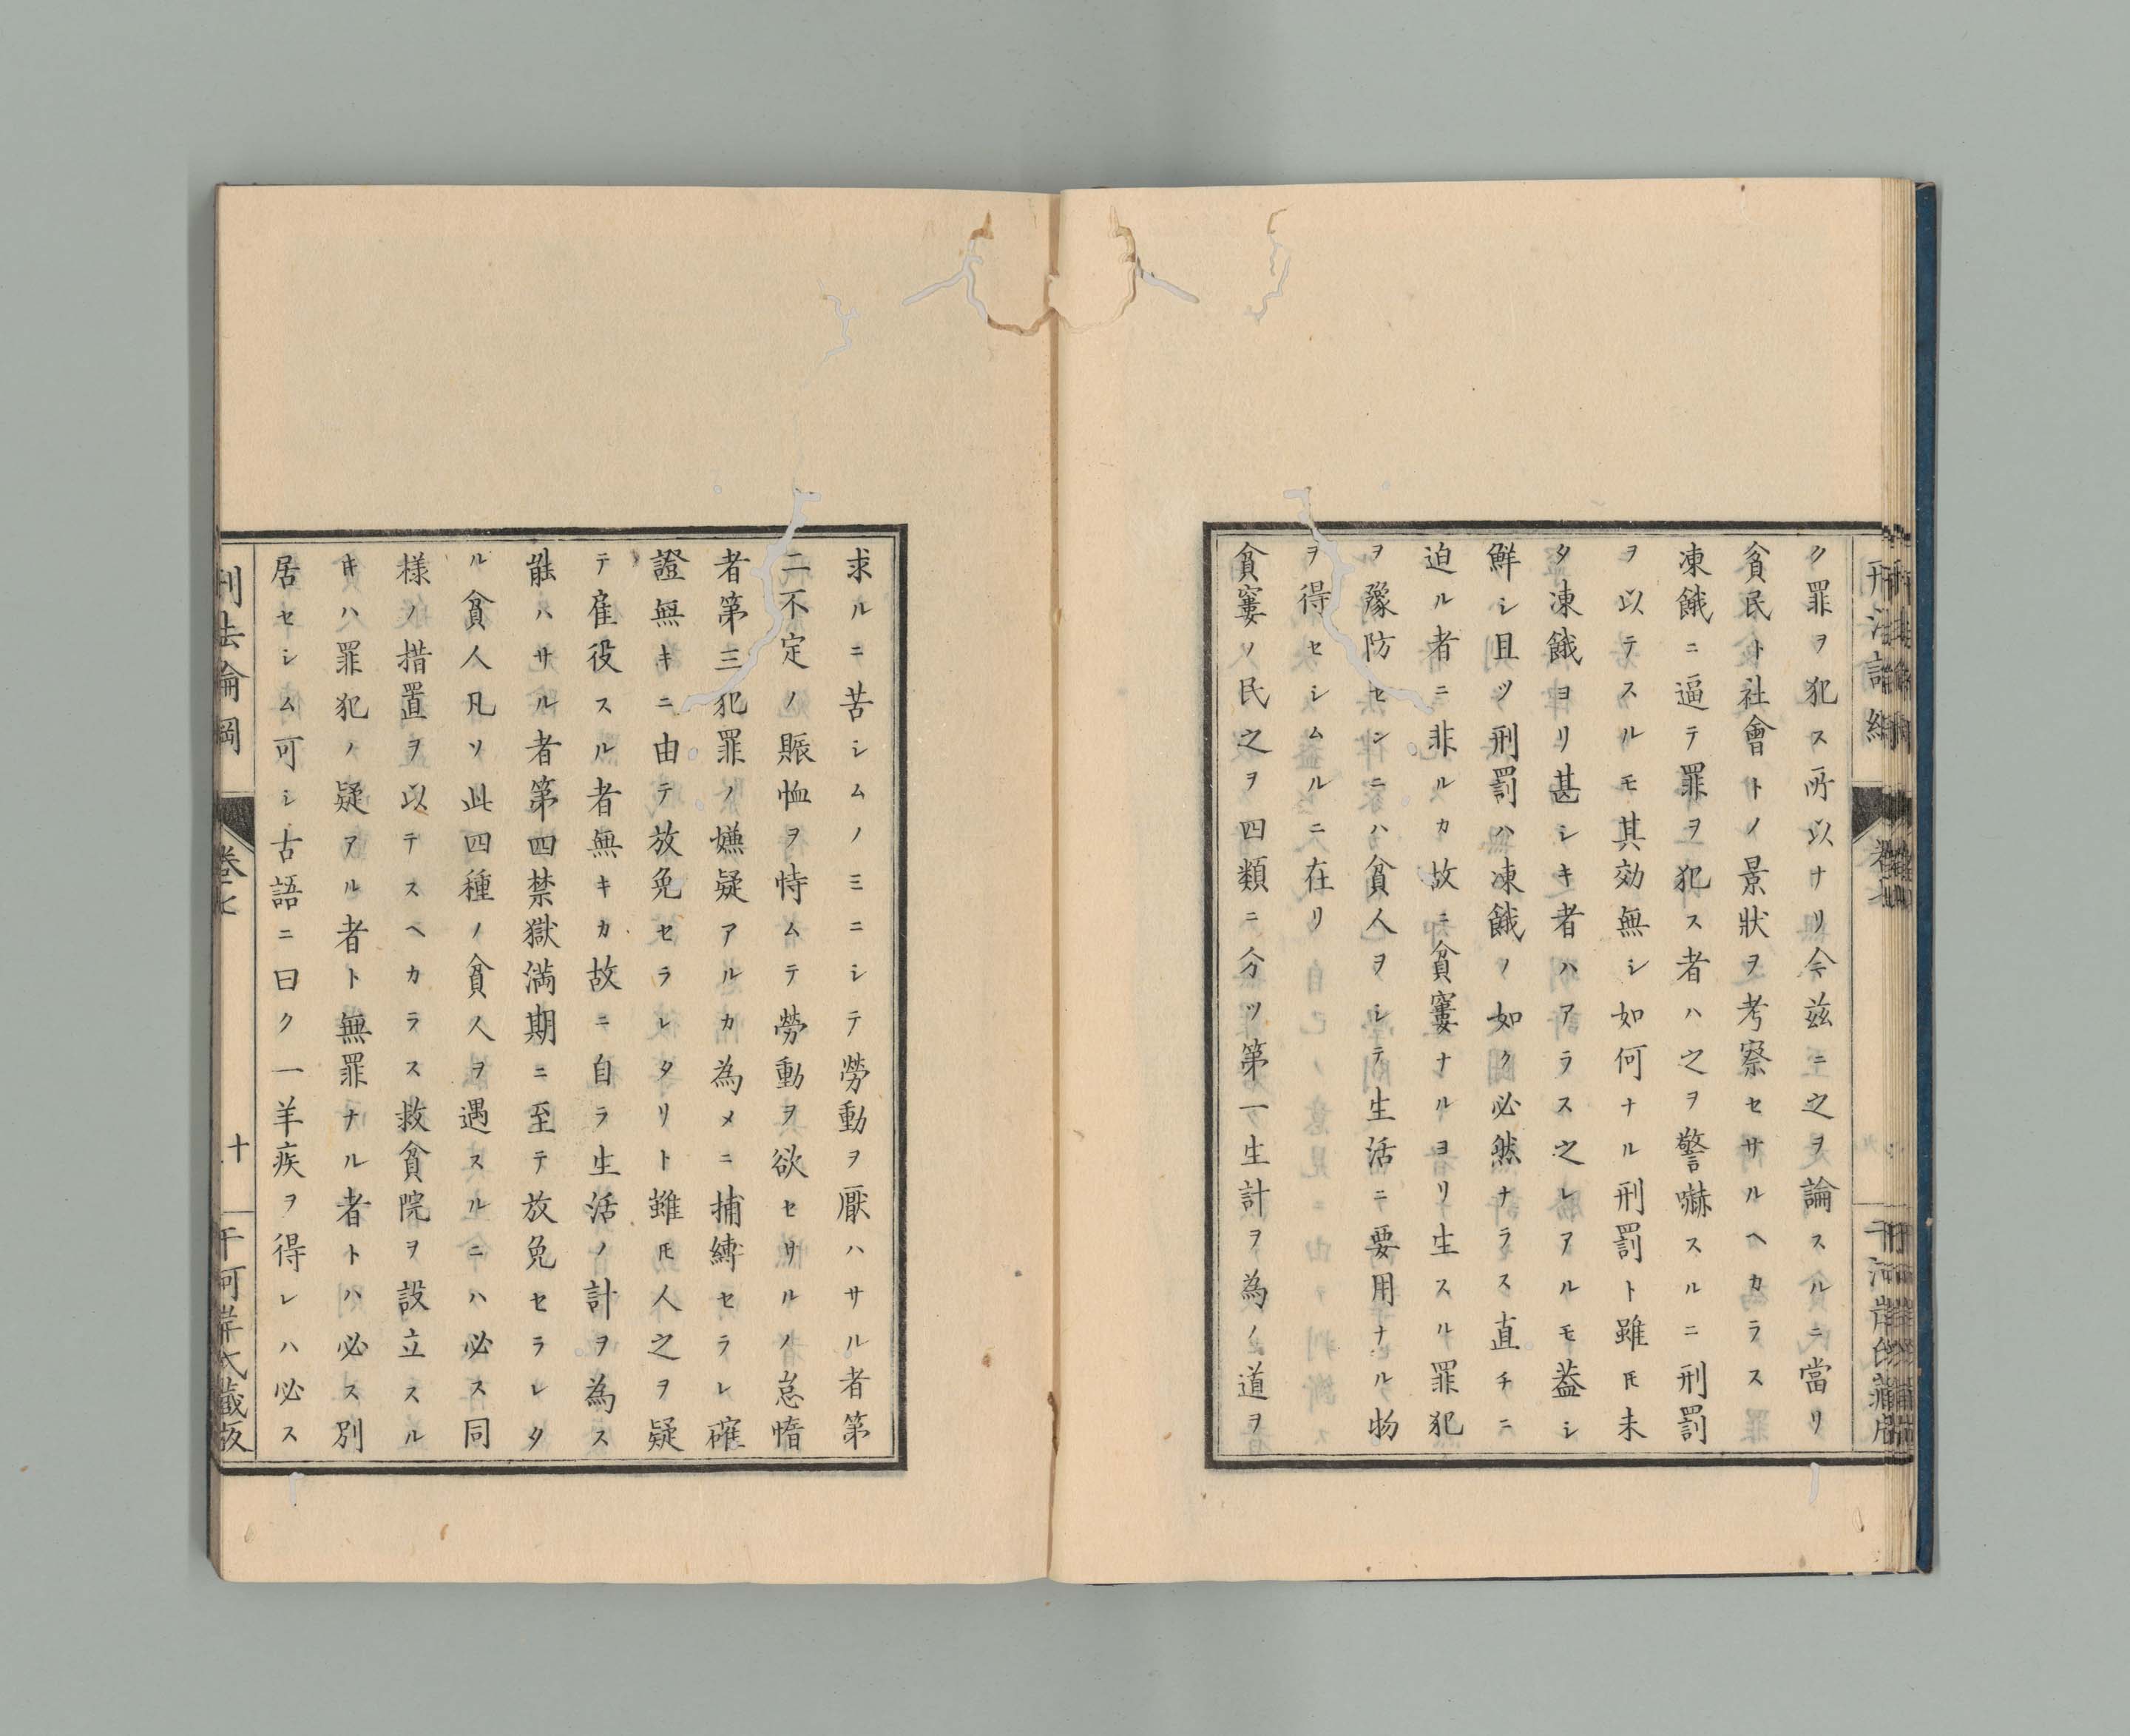 ク罪ヲ犯ス所以ナリ今茲ニ之ヲ論スルニ當リ
貧民ト社會トノ景狀ヲ考察セサルヘカラス
凍餓ニ逼テ罪ヲ犯ス者ハ之ヲ警嚇スルニ刑罰
ヲ以テスルモ其効無シ如何ナル刑罰ト雖𪜈未
タ凍餓ヨリ甚シキ者ハアラス之レアルモ葢シ
鮮シ且ツ刑罰ハ凍餓ノ如ク必然ナラス直チニ
迫ル者ニ非ルカ故ニ貧窶ナルヨリ生スル罪犯
ヲ豫防センニハ貧人ヲシテ生活ニ要用ナル物
ヲ得セシムルニ在リ
貧窶ノ民之ヲ四類ニ分ツ第一生計ヲ為ノ道ヲ
求ルニ苦シムノミニシテ勞動ヲ厭ハサル者第
二不定ノ賑恤ヲ恃ムテ勞動ヲ欲セサルノ怠惰
者第三犯罪ノ嫌疑アルカ為メニ捕縛セラレ確
證無キニ由テ放免セラレタリト雖𪜈人之ヲ疑
テ雇役スル者無キカ故ニ自ラ生活ノ計ヲ為ス
能ハサル者第四禁獄満期ニ至テ放免セラレタ
ル貧人凡ソ此四種ノ貧人ヲ遇スルニハ必ス同
樣ノ措置ヲ以テスヘカラス救貧院ヲ設立スル
𪜈ハ罪犯ノ疑アル者ト無罪ナル者トハ必ス別
居セシム可シ古語ニ曰ク一羊疾ヲ得レハ必ス
刑法論綱
卷七
十
干河岸氏藏板